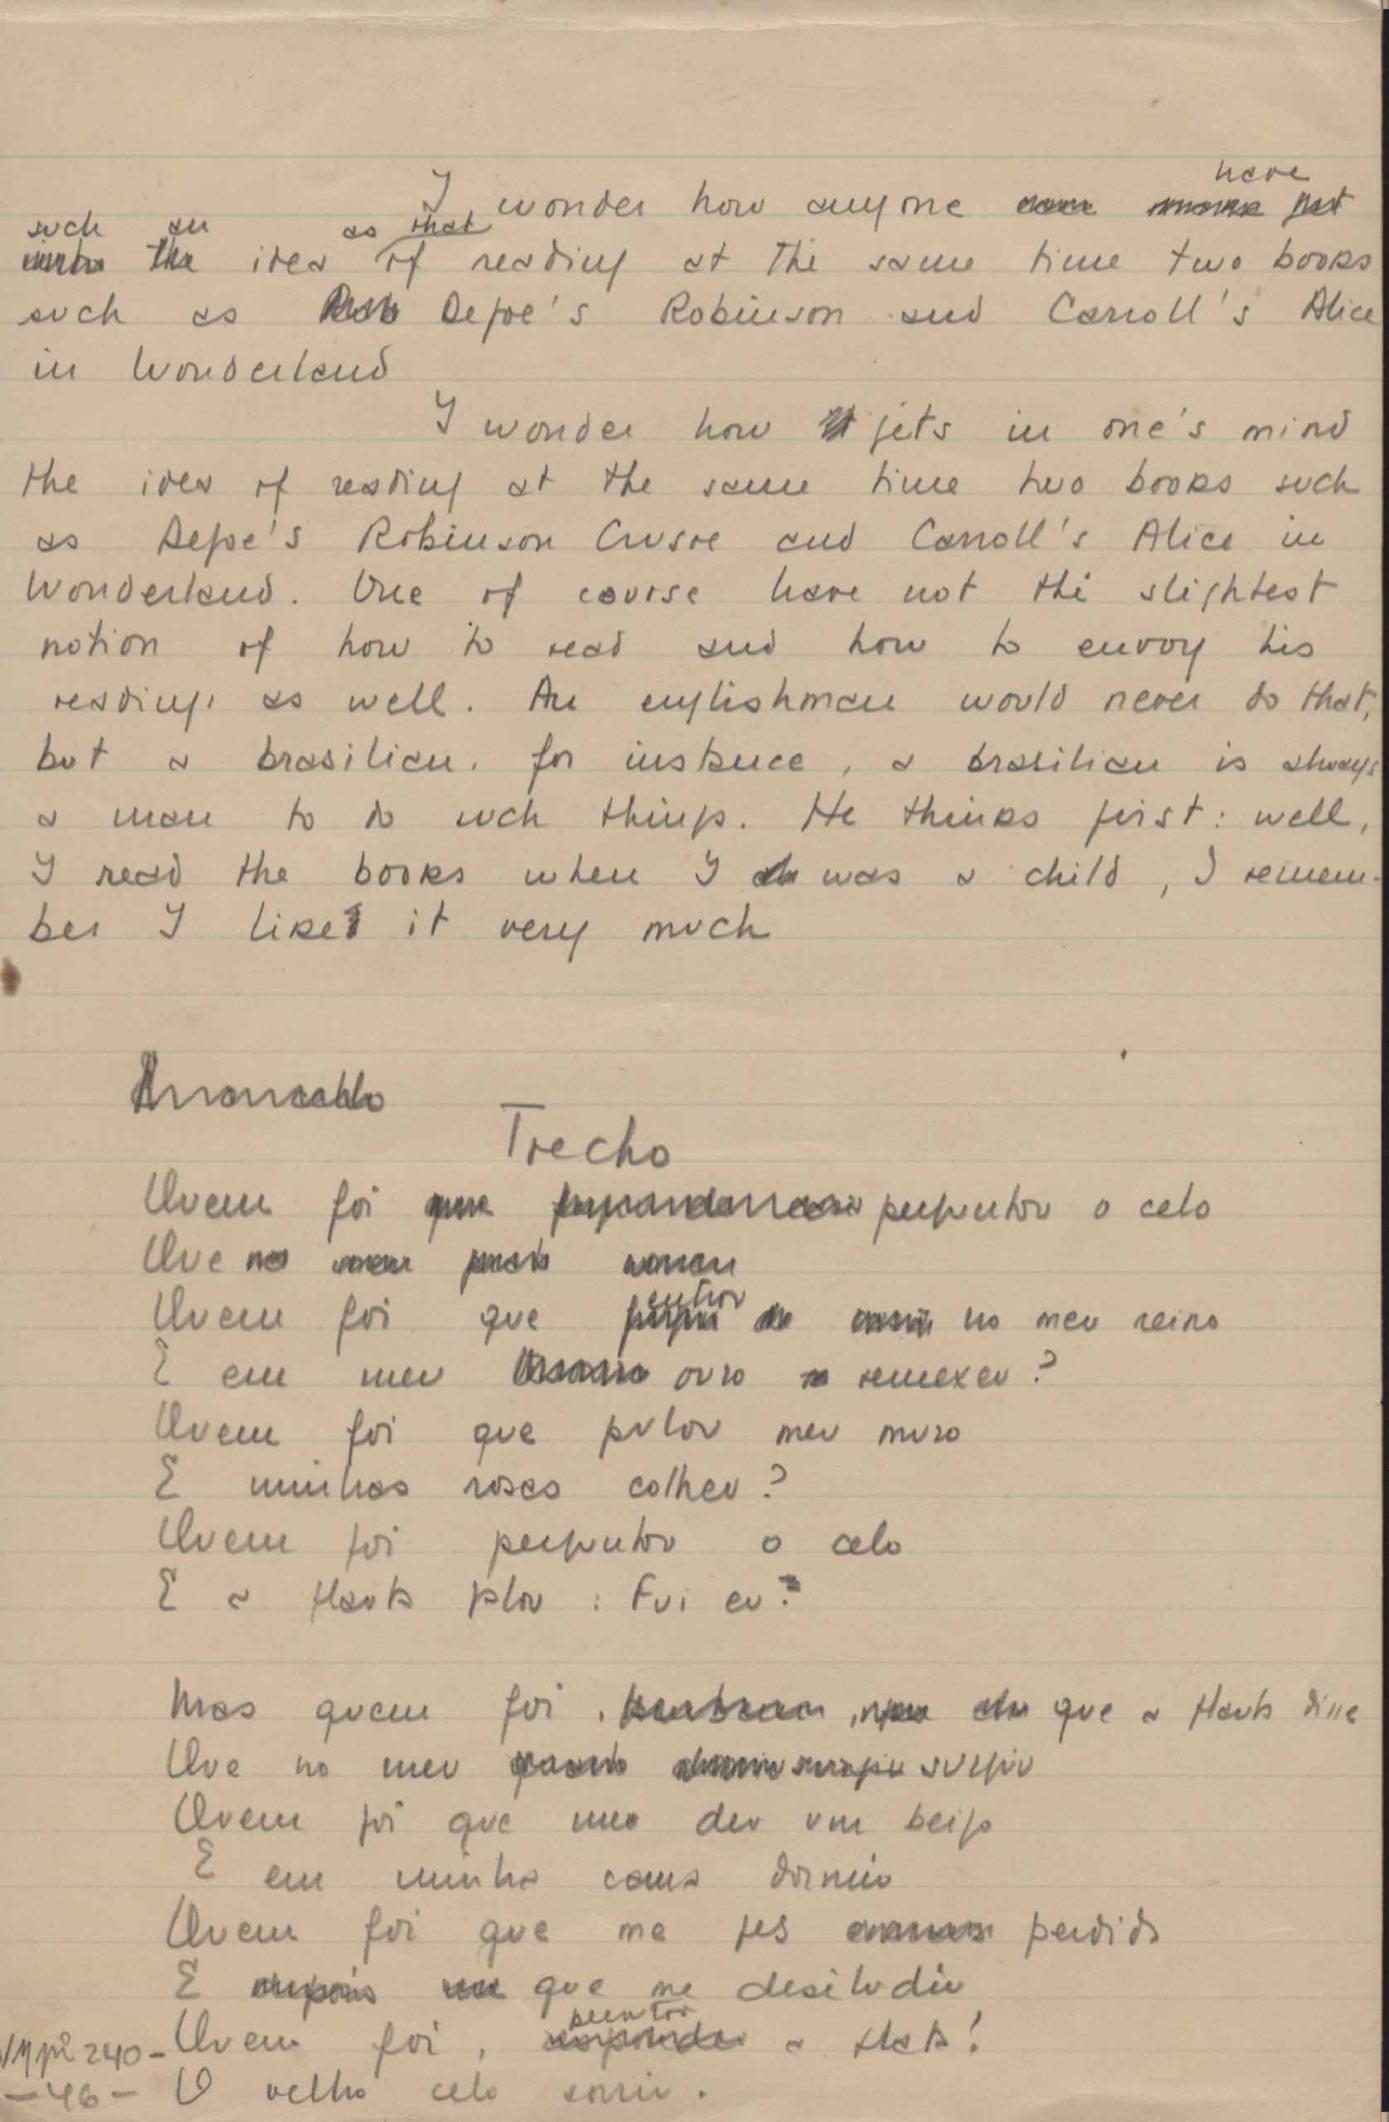 have
I wonder how anyone
such an as that
the idea of reading at the same time two books
such as Defoe's Robinson and Carroll's Alice
in Wonderland
I wonder how jets in one's mind
the idea of reading at the same time two books such
as Defoe's Robinson Crusoe and Carroll's Alice in
Wonderland. One of course have not the slightest
notion of how to read and how to envoy his
readings as well. An englishman would never do that,
but a brasilian, for instance, a brasilian is always
a man to do such things. He thinks first: well,
I read the books when I was a child, I remem-
ber I liked it very much
Trecho
Quem foi perguntou o celo
Que
entrou
Quem foi que no meu reino
E em meu ouro remexeu?
Quem foi que pulou meu muro
E minhas rosas colheu?
Quem foi perguntou o celo
E a flauta falou: Fui eu?
Mas quem foi, que a flauta disse
Que no meu surgiu
Quem foi que me deu um beijo
E em minha cama dormiu
Quem foi que me fes perdido
E que me desiludiu
perguntou
Quem foi, a flauta!
O velho celo sorriu.
VMpi 240-
-46-